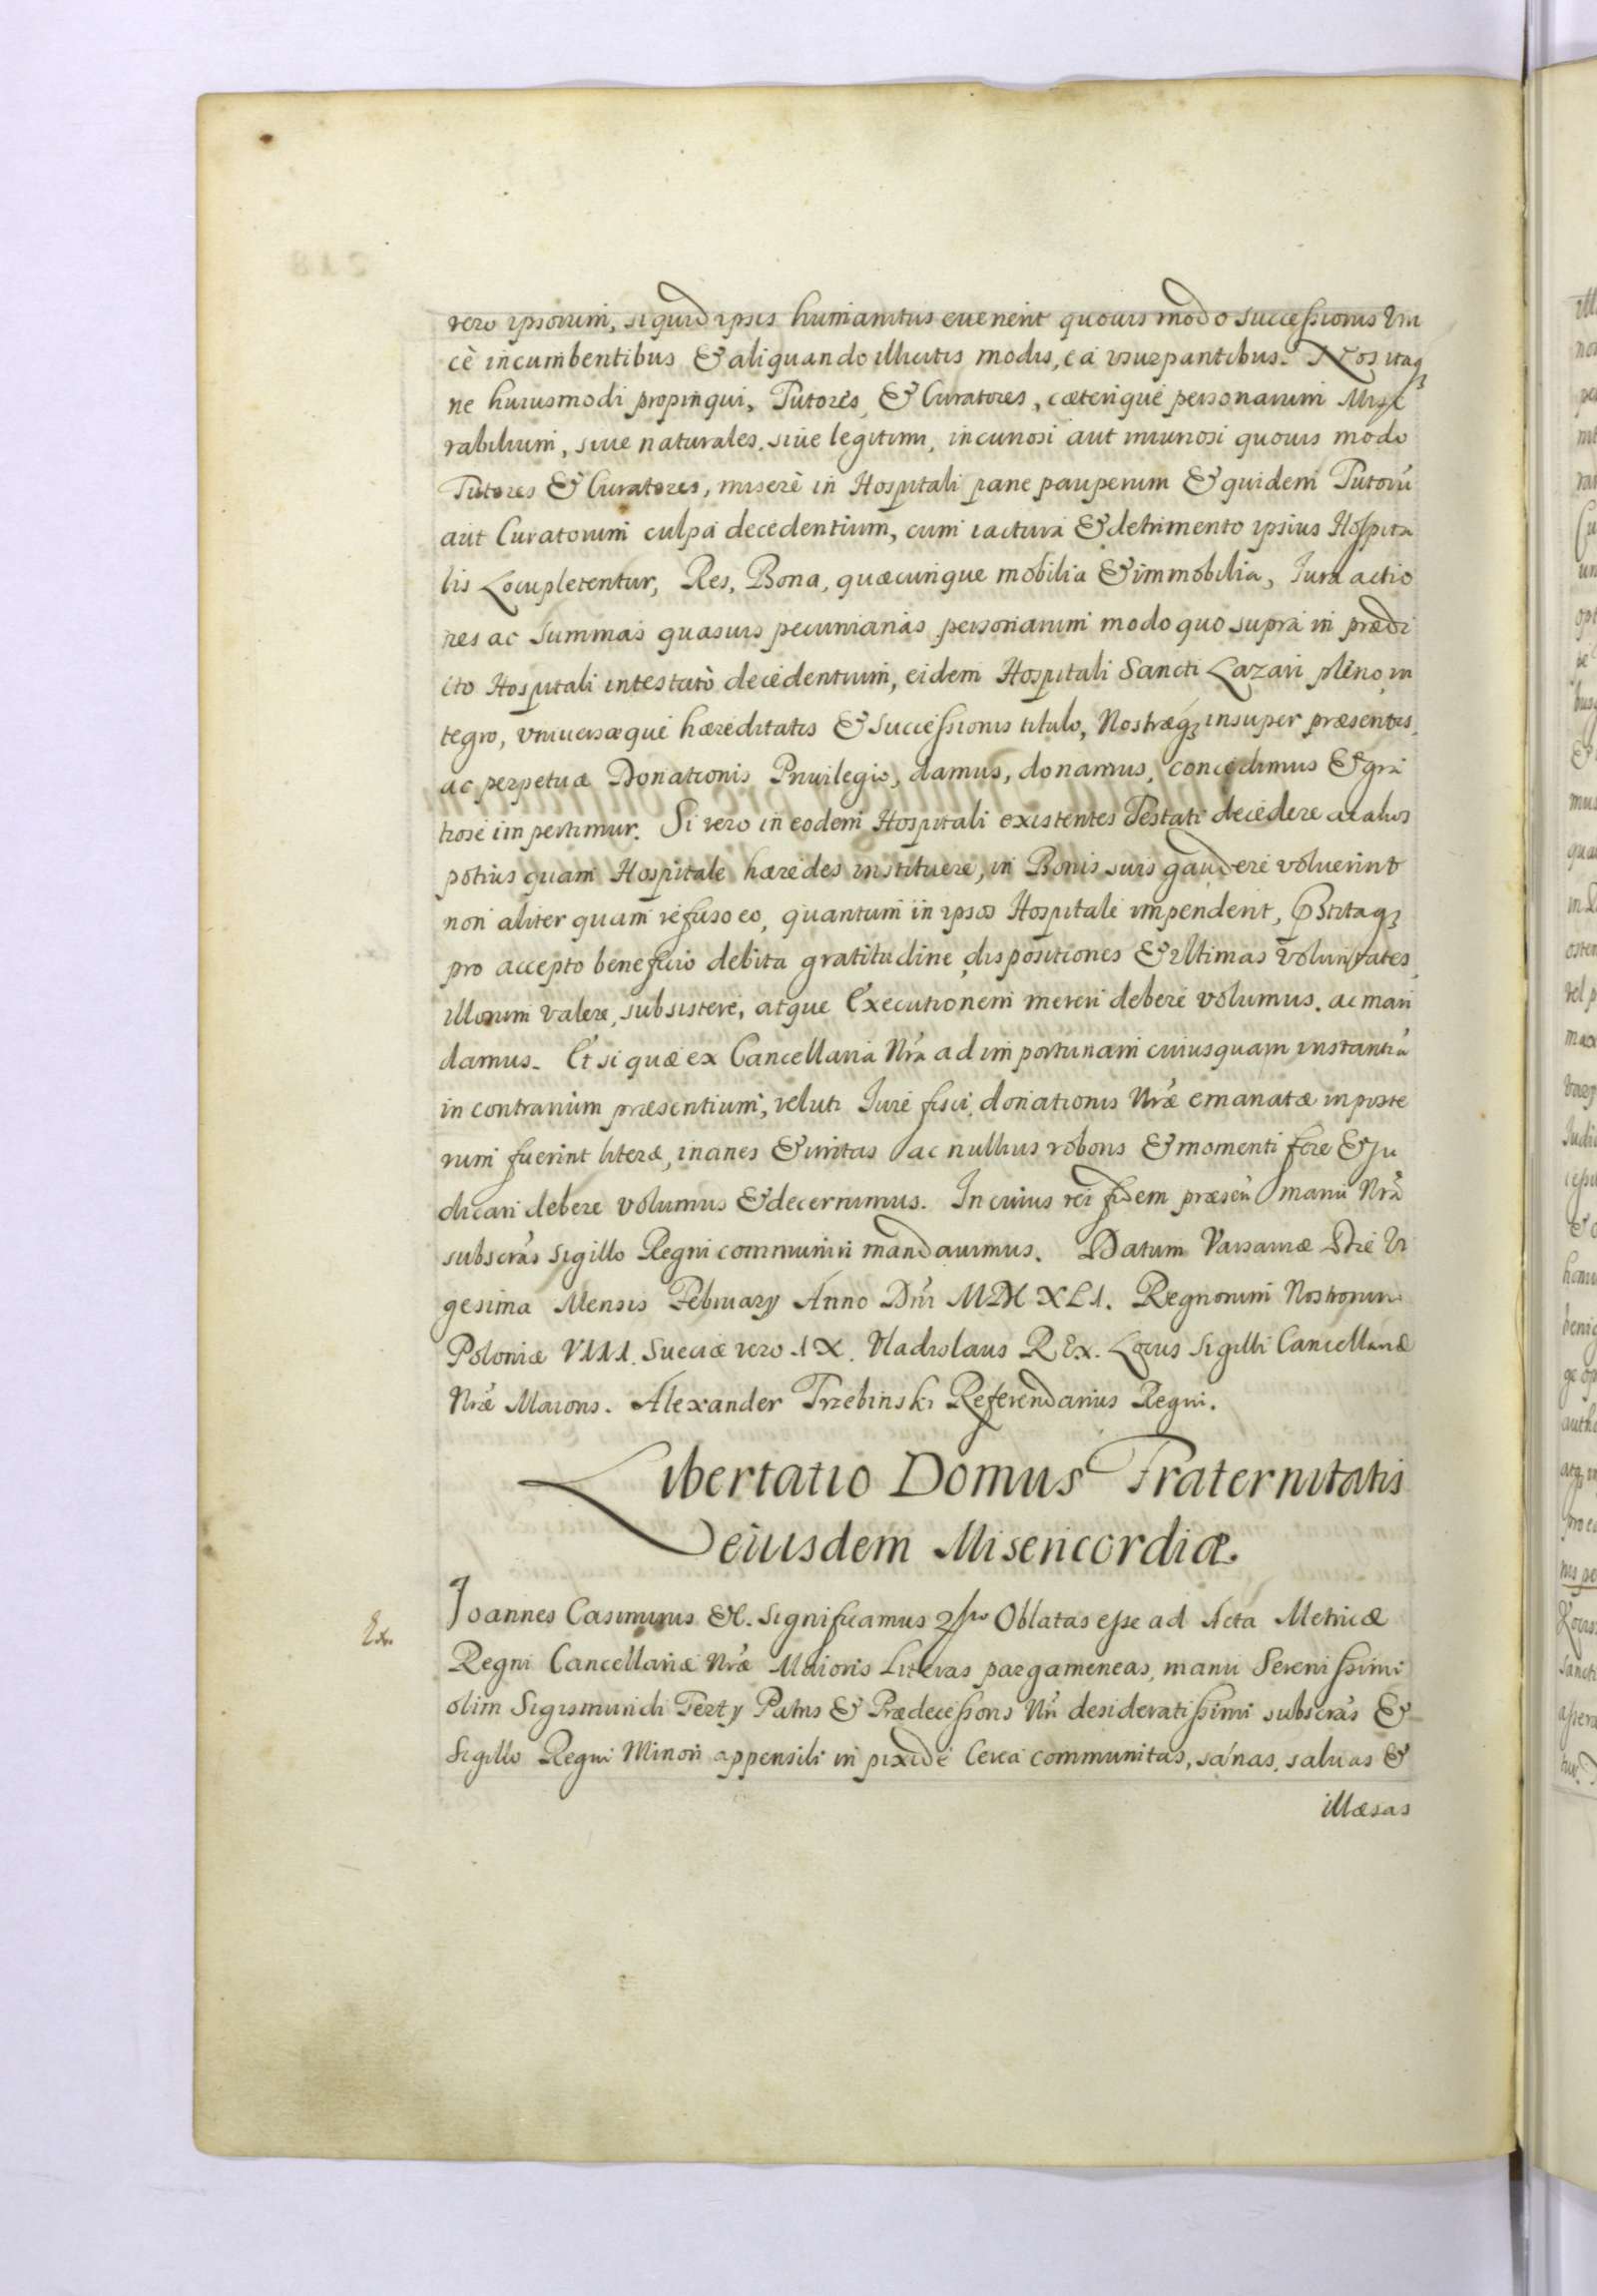 vero ipsorum, siquid ipsis humanitus euenerit quouis modo successionis Vni
cè incumbentibus & aliquando illicitis modis, ea vsurpantibus. Nos itaq3
ne huiusmodi propinqui, Tutores, & Curatores, cæterique personarum Mise
rabilium, siue naturales, siue legitimi, incuriosi aut iniuriosi quouis modo
Tutores & Curatores, miserè in Hospitali pane pauperum & quidem Tutorũ
aut Curatorum culpa decedentium, cum iactura & detrimento ipsius Hospita
lis Locupletentur, Res, Bona, quæcunque mobilia & immobilia, Iura actio
nes ac Summas quasuis pecuniarias personarum modo quo supra in prædi
cto Hospitali intestatò decedentium, eidem Hospitali Sancti Lazari pleno, in
tegro, vniuersæque hæreditatis & successionis titulo, Nostræq3 insuper præsentis,
ac perpetuæ Donationis Priuilegio, damus, donamus, concedimus & gra
tiose impertimur. Si vero in eodem Hospitali existentes Testati decedere ac alios
potius quam Hospitale hæredes instituere, in Bonis suis gaudere voluerint
non aliter quam refuso eo, quantum in ipsos Hospitale impenderit,
pro accepto beneficio debita gratitudine, dispositiones & Vltimas voluntates
illorum valere, subsistere, atque Executionem mereri debere volumus. ac man
damus. Et si quæ ex Cancellaria Nrã ad importunam cuiusquam instantiã
in contrarium præsentium, veluti Iure fisci, donationis Nræ emanatæ in poste
rum fuerint literæ, inanes & irritas ac nullius roboris & momenti fore & Ju
dicari debere volumus & decernimus. In cuius rei fidem præsen̄ manu Nrã
subscrãs Sigillo Regni communiri mandauimus. Datum Varsauiæ Die Vi
gesima Mensis February Anno Dni MDCXLI. Regnorum Nostrorum
Poloniæ VIII. Sueciæ vero IX. Vladislaus REx. Locus Sigilli Cancellariæ
Nræ Maioris. Alexander Trzebinski Referendarius Regni.
Libertatio Domus Fraternitatis
eiusdem Misericordiæ.
Ex.
Joannes Casimirus &c. Significamus Oblatas esse ad Acta Metricæ
Regni Cancellariæ Nræ Maioris Literas pargameneas, manu Serenissimi
olim Sigismundi Terty Patris & Prædecessoris Nri desideratissimi subscrãs &
Sigillo Regni Minori appensili in pixide Cerea communitas, sanas, saluas &
illæsas